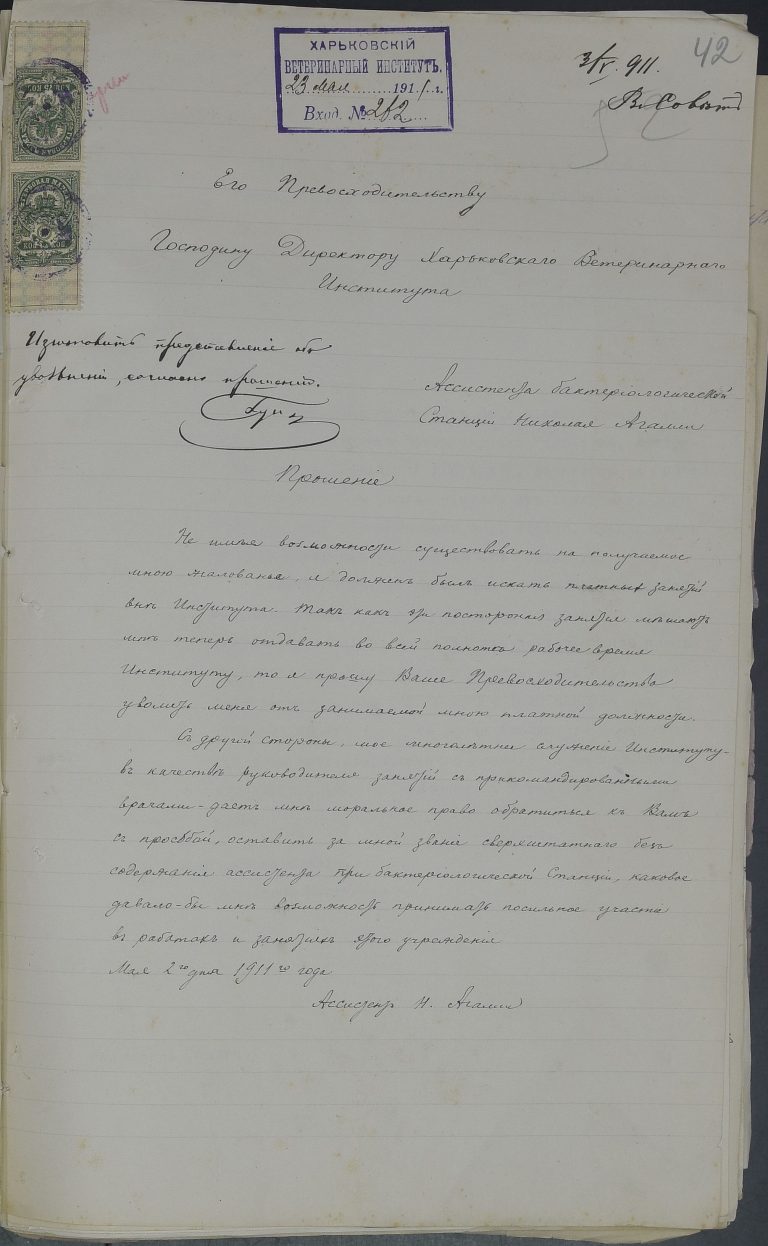 ХАРЬКОВСКІЙ
ВЕТЕРИНАРНЫЙ ИНСТИТУТЪ.
23 мая 1911 г.
Вход. № 262
3/V. 911.
42
Въ Совѣтъ
Его Превосходительству
Господину Директору Харьковскаго Ветеринарнаго
Института
Изготовить представленіе объ
увольненіи, согласно прошенію.
Ассистента бактеріологической
Станціи Николая Агалли
Прошеніе
Не имѣя возможности существовать на получаемое
мною жалованье, я долженъ былъ искать платныхъ занятій
внѣ Института. Такъ какъ эти постороннія занятія мѣшаютъ
мнѣ теперь отдавать во всей полнотѣ рабочее время
Институту, то я прошу Ваше Превосходительство
уволить меня отъ занимаемой мною платной должности.
Съ другой стороны, мое многолѣтнее служеніе Институту -
въ качествѣ руководителя занятій съ прикомандированными
врачами - даетъ мнѣ моральное право обратиться къ Вамъ
съ просьбой, оставить за мной званіе сверхштатнаго безъ
содержанія ассистента при бактеріологической Станціи, каковое
давало-бы мнѣ возможность принимать посильное участіе
въ работахъ и занятіяхъ этого учрежденія
Мая 2го дня 1911го года
Ассистентъ Н. Агалли